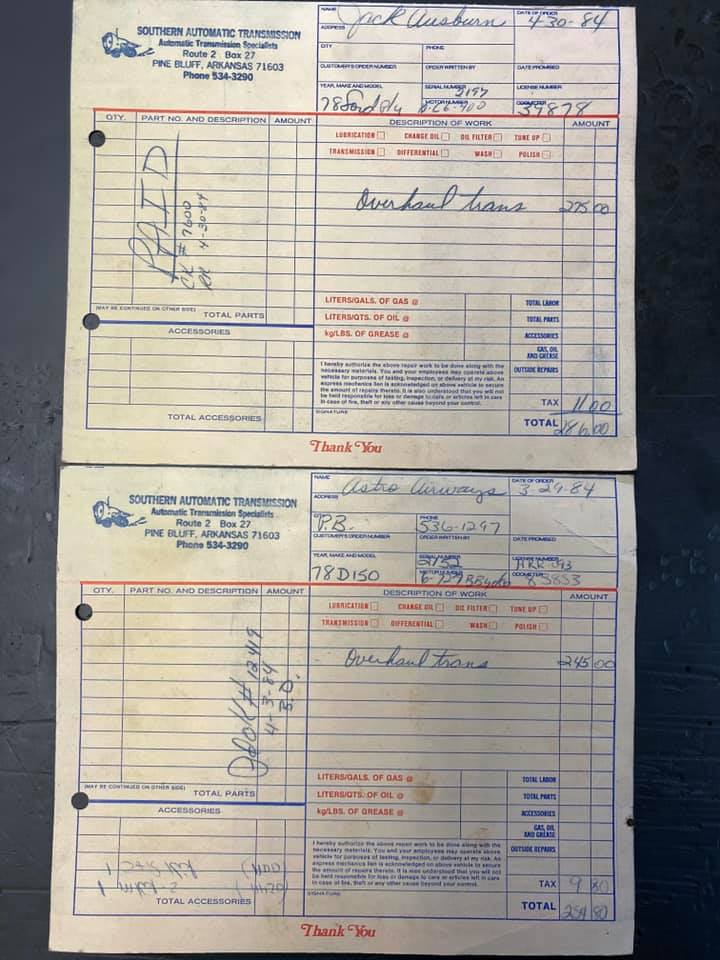 SOUTHERN AUTOMATIC TRANSMISSION
Automatic Transmission Specialists
Route 2 Box 27
PINE BLUFF, ARKANSAS 71603
Phone 534-3290
NAME Jack Ausburn
DATE OF ORDER 4-30-84
ADDRESS
CITY PHONE
CUSTOMER'S ORDER NUMBER ORDER WRITTEN BY DATE PROMISED
YEAR, MAKE AND MODEL 78 Ford
SERIAL NUMBER 2197
LICENSE NUMBER
MOTOR NUMBER
ODOMETER 39878
QTY. PART NO. AND DESCRIPTION AMOUNT DESCRIPTION OF WORK AMOUNT
LUBRICATION CHANGE OIL OIL FILTER TUNE UP
TRANSMISSION DIFFERENTIAL WASH POLISH
PAID
CK # 7600
4-30-84
Overhaul trans 275 00
(MAY BE CONTINUED ON OTHER SIDE) TOTAL PARTS
ACCESSORIES
TOTAL ACCESSORIES
LITERS/GALS. OF GAS @ TOTAL LABOR
LITERS/QTS. OF OIL @ TOTAL PARTS
kg/LBS. OF GREASE @ ACCESSORIES
GAS, OIL AND GREASE
OUTSIDE REPAIRS
I hereby authorize the above repair work to be done along with the
necessary materials. You and your employees may operate above
vehicle for purposes of testing, inspection, or delivery at my risk. An
express mechanics lien is acknowledged on above vehicle to secure
the amount of repairs thereto. It is also understood that you will not
be held responsible for loss or damage to cars or articles left in cars
in case of fire, theft or any other cause beyond your control.
SIGNATURE
TAX 11 00
TOTAL 286.00
Thank You
SOUTHERN AUTOMATIC TRANSMISSION
Automatic Transmission Specialists
Route 2 Box 27
PINE BLUFF, ARKANSAS 71603
Phone 534-3290
NAME Astro Airways
DATE OF ORDER 3-29-84
ADDRESS
CITY P.B.
PHONE 536-1297
CUSTOMER'S ORDER NUMBER ORDER WRITTEN BY DATE PROMISED
YEAR, MAKE AND MODEL 78 D150
SERIAL NUMBER
LICENSE NUMBER
MOTOR NUMBER
ODOMETER
QTY. PART NO. AND DESCRIPTION AMOUNT DESCRIPTION OF WORK AMOUNT
LUBRICATION CHANGE OIL OIL FILTER TUNE UP
TRANSMISSION DIFFERENTIAL WASH POLISH
# 12419
4-3-84
B.D.
Overhaul trans 245 00
(MAY BE CONTINUED ON OTHER SIDE) TOTAL PARTS
ACCESSORIES
TOTAL ACCESSORIES
LITERS/GALS. OF GAS @ TOTAL LABOR
LITERS/QTS. OF OIL @ TOTAL PARTS
kg/LBS. OF GREASE @ ACCESSORIES
GAS, OIL AND GREASE
OUTSIDE REPAIRS
I hereby authorize the above repair work to be done along with the
necessary materials. You and your employees may operate above
vehicle for purposes of testing, inspection, or delivery at my risk. An
express mechanics lien is acknowledged on above vehicle to secure
the amount of repairs thereto. It is also understood that you will not
be held responsible for loss or damage to cars or articles left in cars
in case of fire, theft or any other cause beyond your control.
SIGNATURE
TAX 9 80
TOTAL 254 80
Thank You